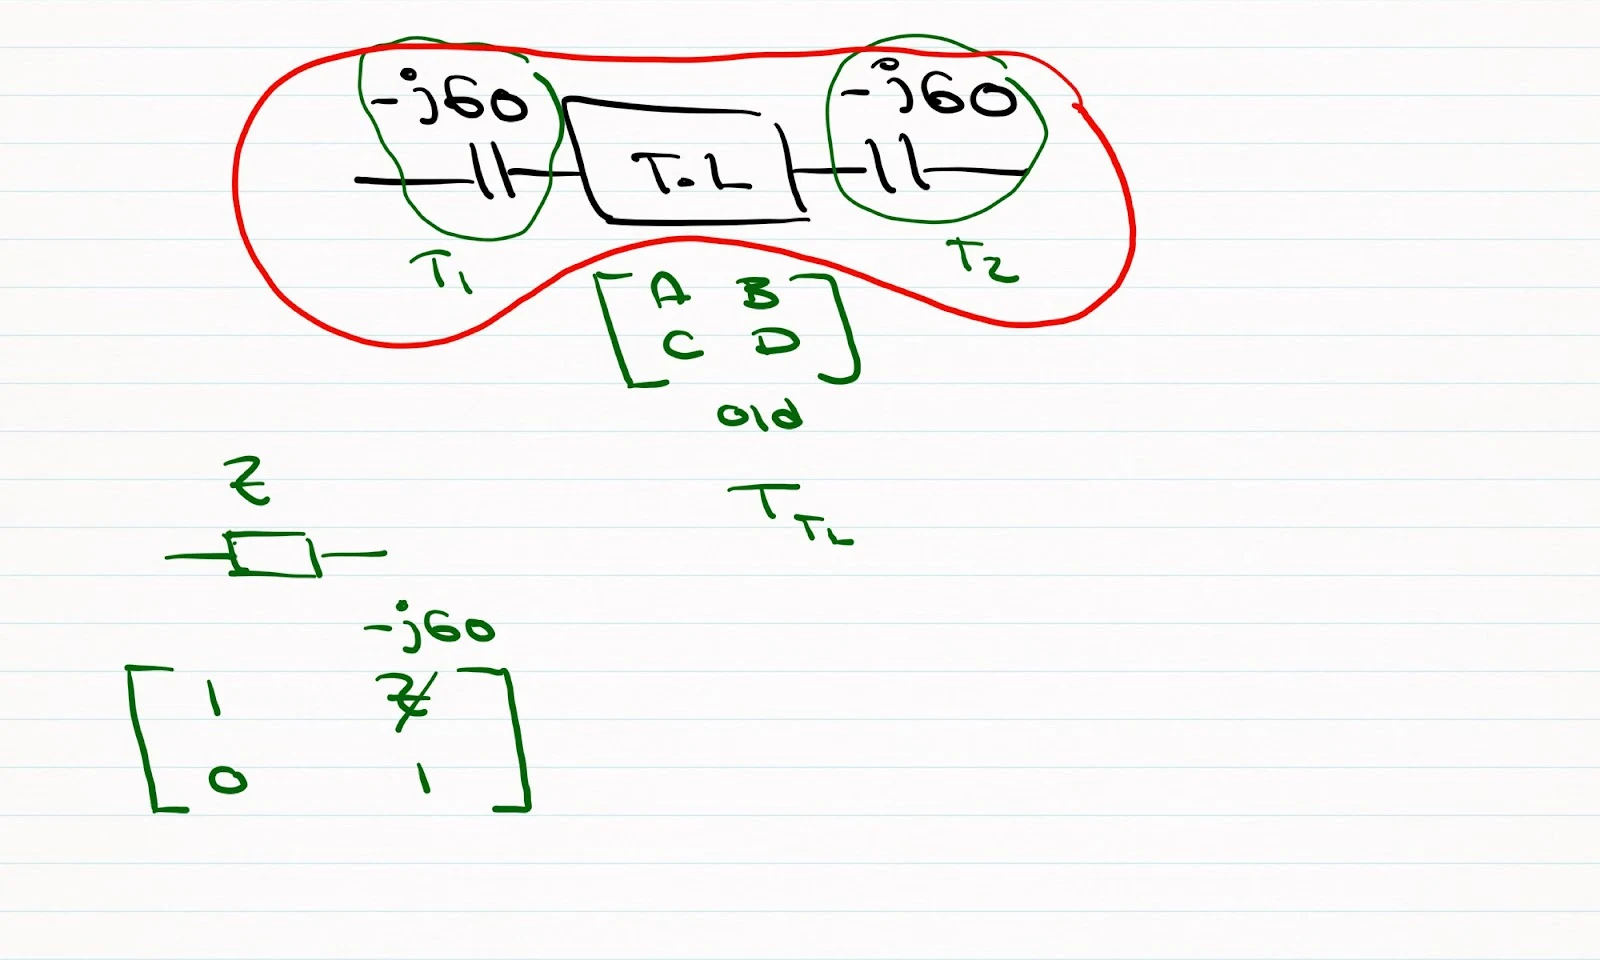 -j60 -j60
T.L
T1 T2
A B
C D
old
Z
T TL
-j60
1 Z
0 1